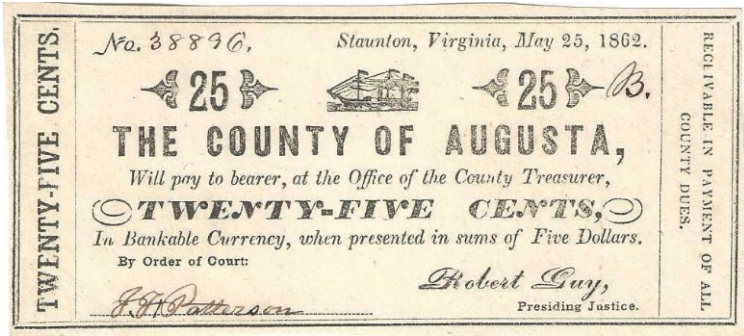 TWENTY-FIVE CENTS.
No. 38896.
Staunton, Virginia, May 25, 1862.
25 25 B.
THE COUNTY OF AUGUSTA,
Will pay to bearer, at the Office of the County Treasurer,
TWENTY-FIVE CENTS,
In Bankable Currency, when presented in sums of Five Dollars.
By Order of Court:
Robert Guy,
Patterson
Presiding Justice.
RECEIVABLE IN PAYMENT OF ALL
COUNTY DUES.